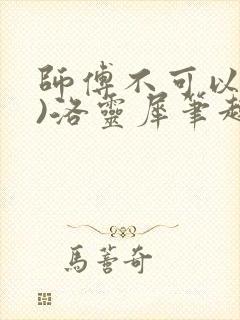 師傅不可以
)洛靈犀筆趣
馬蓄奇